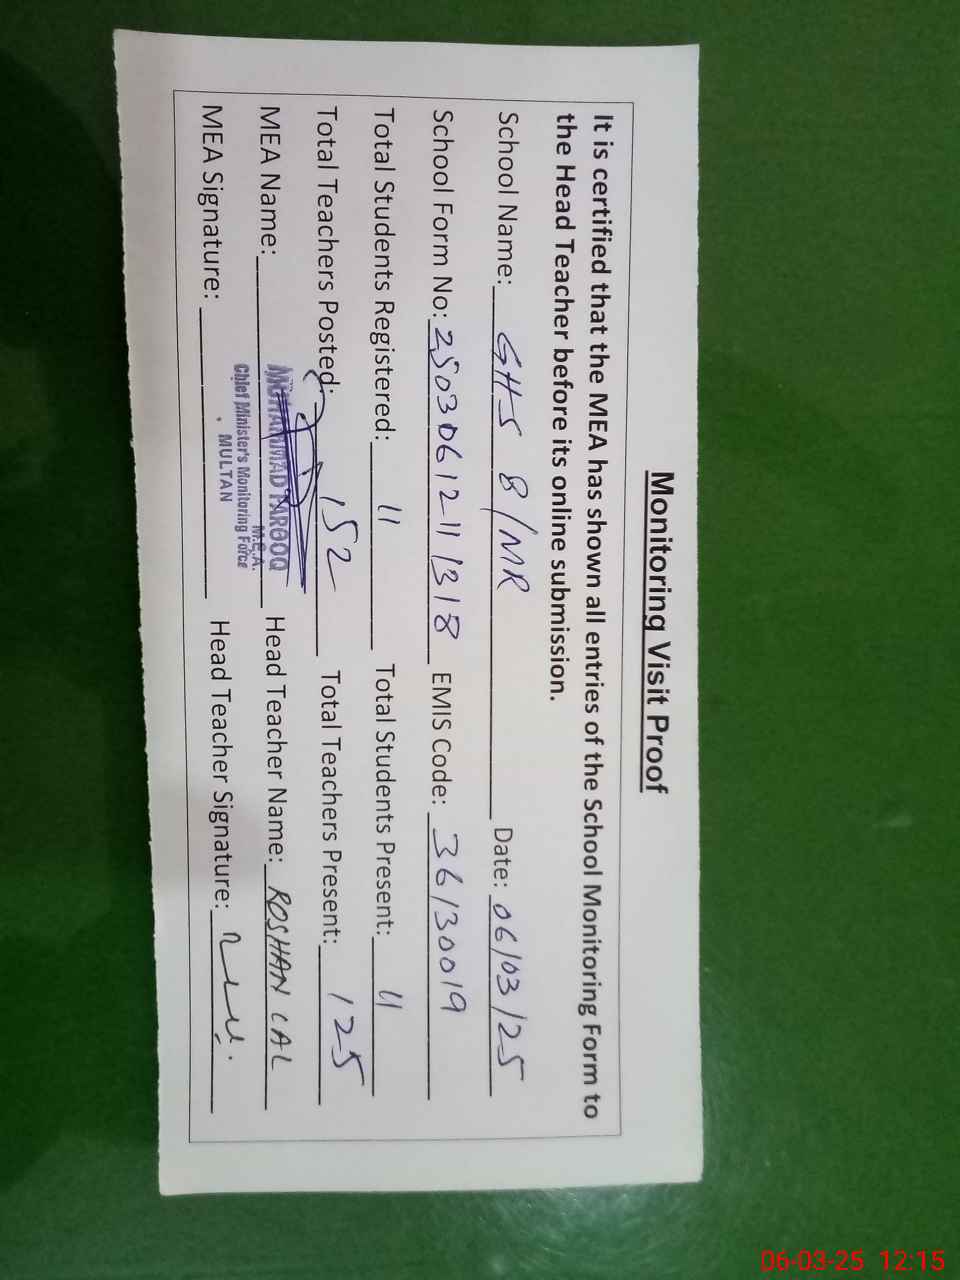 Monitoring Visit Proof
It is certified that the MEA has shown all entries of the School Monitoring Form to
the Head Teacher before its online submission.
School Name: GHS 8/MR Date: 06/03/25
School Form No: 2503061211318 EMIS Code: 36130019
Total Students Registered: 11 Total Students Present: 11
Total Teachers Posted: 152 Total Teachers Present: 125
MEA Name: MUHAMMAD FAROOQ Head Teacher Name: ROSHAN LAL
M.E.A.
Chief Minister's Monitoring Force
MULTAN
MEA Signature: Head Teacher Signature:
06-03-25 12:15